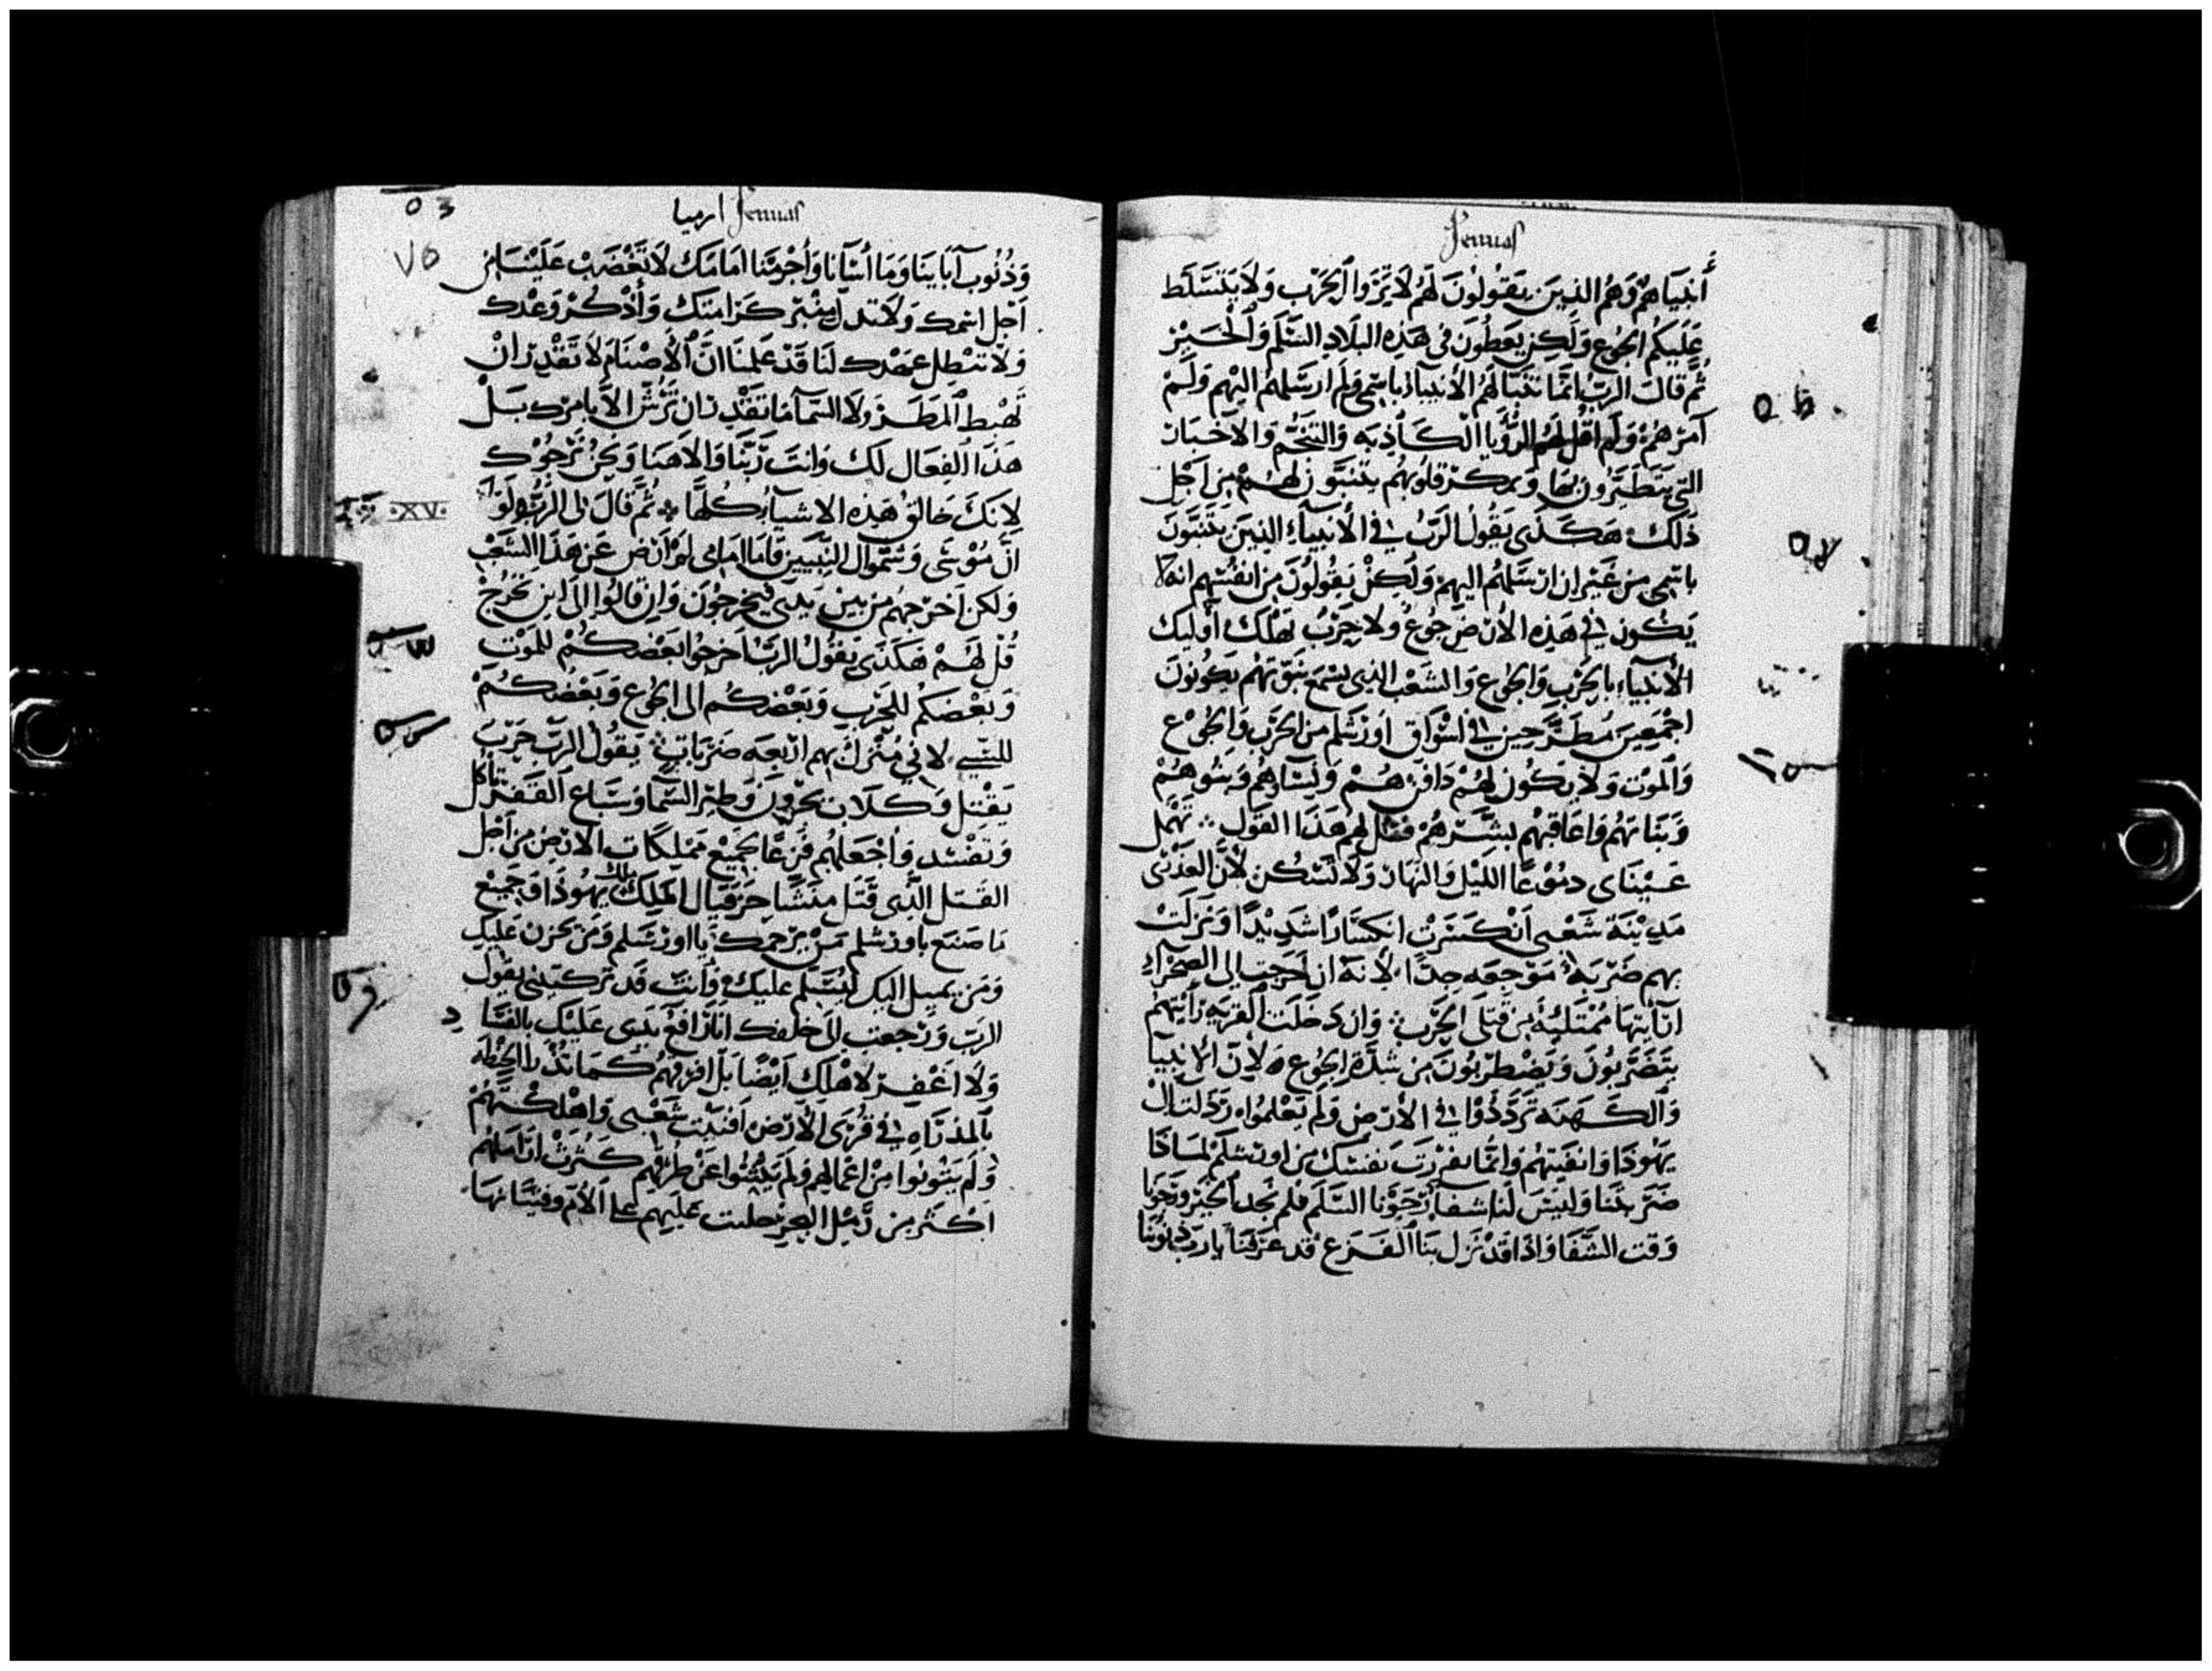 Jeremias
أنبياهم وَهُم الذين يَقُولُونَ لهُم لاَ تَرَوا الحَرْب وَلاَ يَتسَلَط
عَلَيكُم الجُوع وَلَكِن يعَطُونَ في هَذه البلَادِ السَّلَم وَالْخَيْر
ثُم قَالَ الرَبّ انمَّا تَنَبَّا لهُم الأنبيآء باسْمي وَلم ارسَلهُم اليْهم وَلَمْ
آمرْهُمْ وَلَم اقُل لهُم الرُؤْيا الكَاذِبَه وَالتَنَجُم وَالاخبَار
التي يَتَطَيَّرُونَ بهَا وَبمكر قلُوبهُم يتنبَّون لهُم مِن اَجْل
ذَلكَ هَكَذَى يَقُولُ الرَبُ في الأنبيآءِ الذِينَ يَتَنَبَّونَ
باسْمي من غَيْر ان ارْسَلهُم اليهمْ وَلَكِنْ يَقُولُونَ مِن انفُسِهم انه لا
يَكُون في هَذِه الأرْض جُوعٌ وَلا حَرْبٌ يَهْلك أُوليك
الأنبيآء بالحَرْبِ وَالجُوع وَالشَعْب الذِي يَسْمَع نبَوّتهُم يَكُونُونَ
اجْمَعِينَ مُطَرَّحِين في اسْوَاق اورَشَلم مِن الحَرْب وَالجُوع
وَالمَوْت وَلاَ يَكُون لهُمْ دَافن هُمْ وَنِسَاوهُم وَبنُوهُمْ
وَبَنَاتهُم وَاعَاقبهُم بشَرّهُمْ فَقُل لهُم هَذا القَوْل تَهْمل
عَيْنَاى دمُوعًا اللَيْل وَالنهَار وَلاَ تسْكن لأنَّ العَذْرَى
مَدِيْنَة شَعْبي اَنْكَسَرَت انكسَارًا شَدِيْدًا وَنزلَتْ
بهم ضَرْبَة مَوْجعَه جدًا لأنهُ ان خَرَجت إلى الصَحْرَآءِ
رَايتهَا مُمْتَليه مِن قَتلَى الحَرْب وَان دَخَلت القَريَه رَأيتهم
يَتَضَرَّبُونَ وَيَضْطَرِبُونَ مِن شِدّةِ الجُوع لأن الأنبيا
وَالكَهَنَه تَرَدَّدُوْا في الأرْض وَلَم يَعْلمُوا رَذلت ال
يَهُوذَا وَانفَيتهُم وَانمَّا نفرَت نفسَكَ مِن اورشَلمْ لمَاذَا
ضَرَبتَنا وَليْسَ لَنا شفَآ رَجَوْنا السَّلَم فلم نجد الخيْر وَرَجونا
وَقت الشفَا وَاذَا قدْ نَزل بنَا الفَزَع قد عَرَفنَا يا رَبّ ذنُوبنَا
ارميا Jeremias
وَذُنُوب آبَاينَا وَمَا أسَانَا وَأجْرَمْنا امَامَكَ لاَ تَغْضَبْ عَلَيْنَا مِن
اَجْل اسْمك وَلاَ تذل مِنْبَر كَرَامَتكَ وَأذْكُرْ وَعْدك
وَلاَ تبْطِل عَهْدك لَنا قَدْ عَلِمْنَا انَّ الأصْنَامَ لاَ تَقْدِر انْ
تهْبِط المَطَر وَلاَ السَّمآ مَا تَقْدِر ان تَرُش الاَّ بامرك بَلْ
هَذا الفِعَال لكَ وَانتَ رَبّنَا وَالاهنا وَنحْنُ نَرْجُوك
لأنكَ خَالِق هَذِه الاشيآ كُلّهَا ثُمَّ قَالَ لى الرَبُّ وَلَوْ
.XV.
انّ مُوْسَى وَسَمُّوَال النبِيين قَامَا امَامى لَمْ اَرْض عَن هَذا الشَعْبِ
وَلكن اَخْرجهُم من بين يَدَيَ فيَخرجُون وَان قَالُوا الى اين نخْرجْ
قُل لهُمْ هَكَذَى يَقُولُ الرَبّ اَخرجُوا بَعْضكُمْ للمَوْتِ
وَبعْضكُم للحَرْبِ وَبَعْضكُم الى الجُوع وَبَعْضكُمْ
للسَبيِ لاني مُنْزل بهم ارْبعَه ضَرَبَات يَقُولُ الرَبّ حَرْب
يَقْتل وَكلاَب يَجرّونَ وَطير السَّمَا وَسبَاع القَفْر تاكل
وَتفسد وَاجْعَلهُم فَزعًا لجَميْع مَمْلكَات الارْض مِن اَجْل
القَتل الذِى قَتَلَ مِنَشَّا حَزقيَال الملِك ملك يَهُوذَا وَجَميْع
مَا صَنَع باورشلم مَنْ يَرْحمك يَا اورشَلم وَمَن يحزن عَليكِ
وَمَن يميل اليك ليُسَلم عَليكِ وَأنت قد تركتيني يقول
الرَبّ وَرَجعت الى خلفك انا رَافع يَدى عَلَيْكِ بالفسَاد
وَلاَ اغْفِر لأهْلكِ اَيْضًا بَل افرّقهُم كمَا تُذْرا الحِنْطَه
بالمذْرَاه في قُرَى الأرْض افْنَيْت شَعْبى وَاهلكتهُمْ
وَلَم يَتُوبُوا مِنْ اعْمَالهُم وَلَم يَنثنوا عَنْ طرُقهُم كَثرت ارَاملهُم
اكْثر مِن رَمْل البحْر جلبت عَليْهم عَلى الأُم وَفتيَانهَا